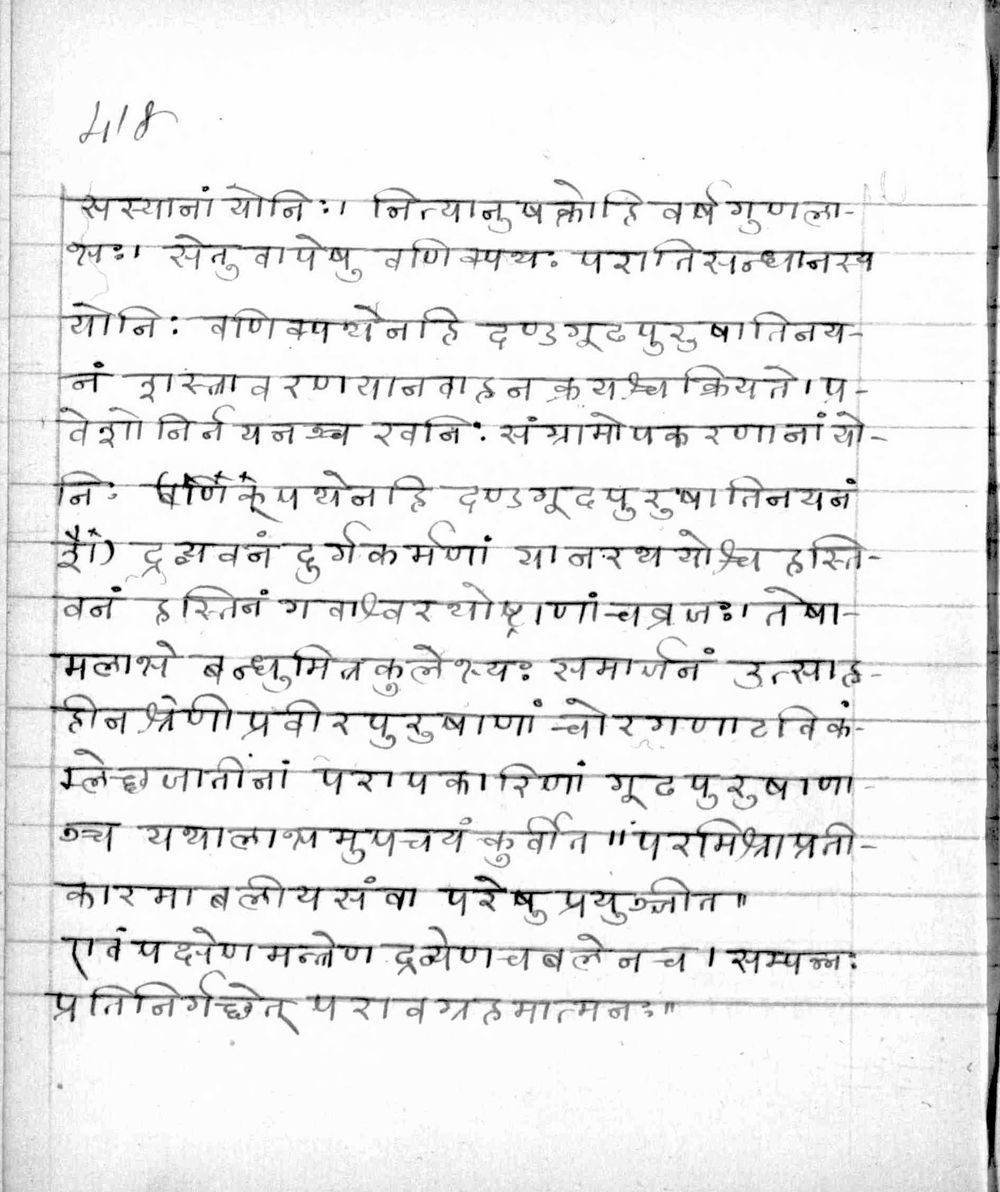 418
सस्यानां योनिः। नित्यानुषक्तोहि वर्षगुणला-
भः। सेतुवापेषु वणिक्पथः परातिसन्धानस्य
योनिः वणिक्पथेनहि दण्डगूढपुरुषातिनय-
नं शस्त्रावरणयानवाहनक्रयश्च क्रियते। प्र-
वेशो निर्नयनञ्च खनिः संग्रामोपकरणानां यो-
निः वणिक्पथेनहि दण्डगूढपुरुषातिनयनं
द्रव्यवनं दुर्गकर्मणां यानरथयोश्च हस्ति-
वनं हस्तिनं गवाश्वरथोष्ट्राणां च व्रजः। तेषा-
मलाभे बन्धुमित्रकुलेभ्यः समार्जनं उत्साह-
हीनश्रेणीप्रवीरपुरुषाणां चोरगणाटविकं-
म्लेच्छजातीनां परापकारिणां गूढपुरुषाणा-
ञ्च यथालाभमुपचयं कुर्वीत॥ परमिश्राप्रती-
कारमाबलीयसं वा परेषु प्रयुञ्जीत॥
एवं पक्षेण मन्त्रेण द्रव्येण च बलेन च। सम्पन्नः
प्रतिनिर्गच्छेत् परावग्रहमात्मनः॥